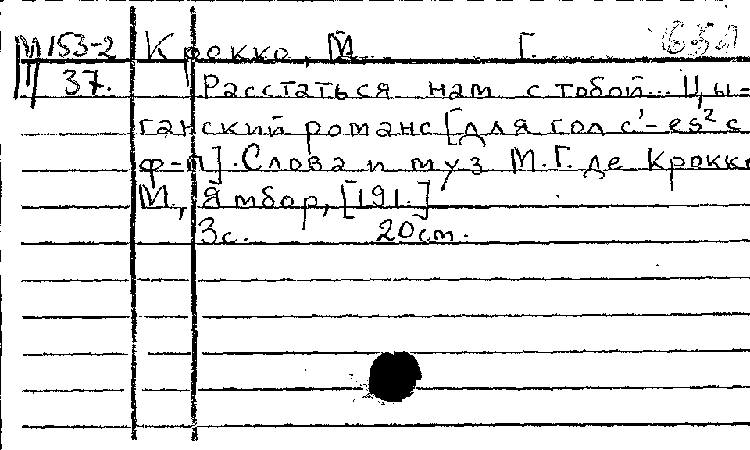 М 153-2 Крокко, М. Г. 650
37. Расстаться нам с тобой... Цы=
ганский романс [для гол c¹-es² с
ф-п]. Слова и муз М.Г. де Крокко
М., Ямбор, [191.]
3с. 20cm.